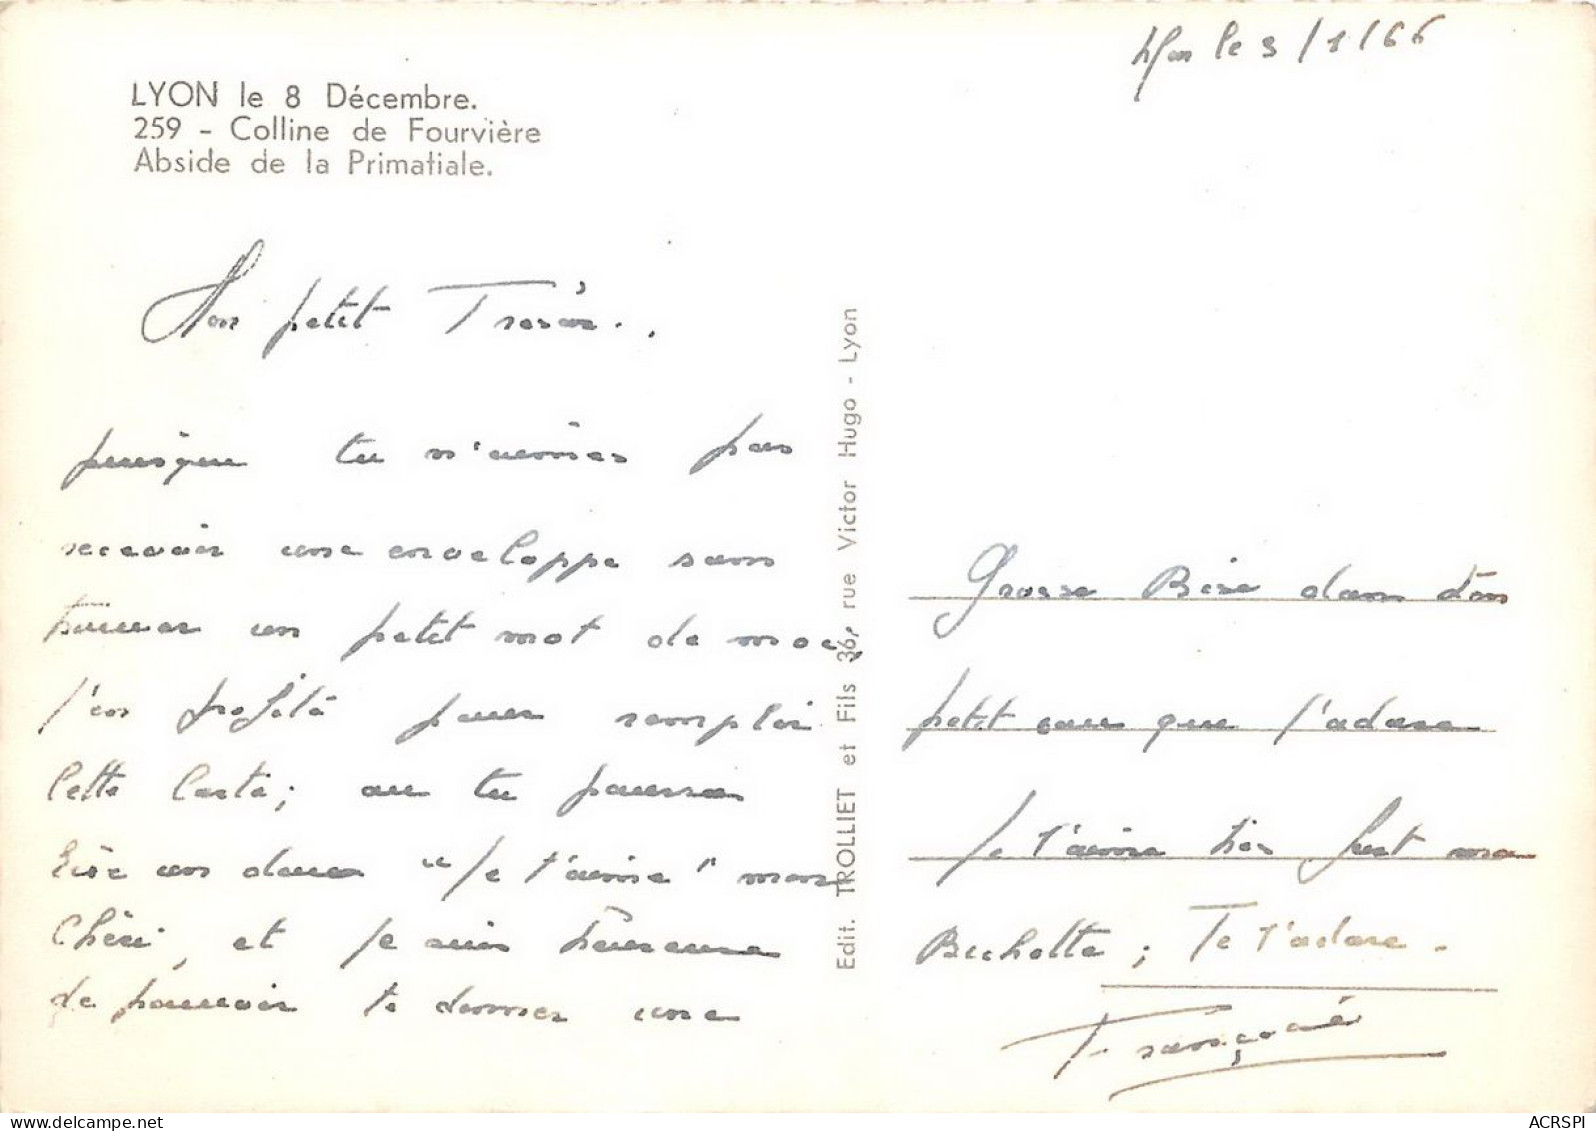 Lyon le 3/1/66
LYON le 8 Décembre.
259 - Colline de Fourvière
Abside de la Primatiale.
Mon petit Trésor..
puisque tu n'aimes pas
recevoir une enveloppe sans
trouver un petit mot de moi,
j'en profite pour remplir
cette carte; ou tu pourras
lire un doux "Je t'aime" mon
Chéri, et je suis heureuse
de pouvoir te donner une
Grosse Bise dans ton
petit cou que j'adore
Je t'aime très fort ma
Bichette; Je t'adore.
Françoise
Edit. TROLLIET et Fils 36, rue Victor Hugo - Lyon
delcampe.net
ACRSPI